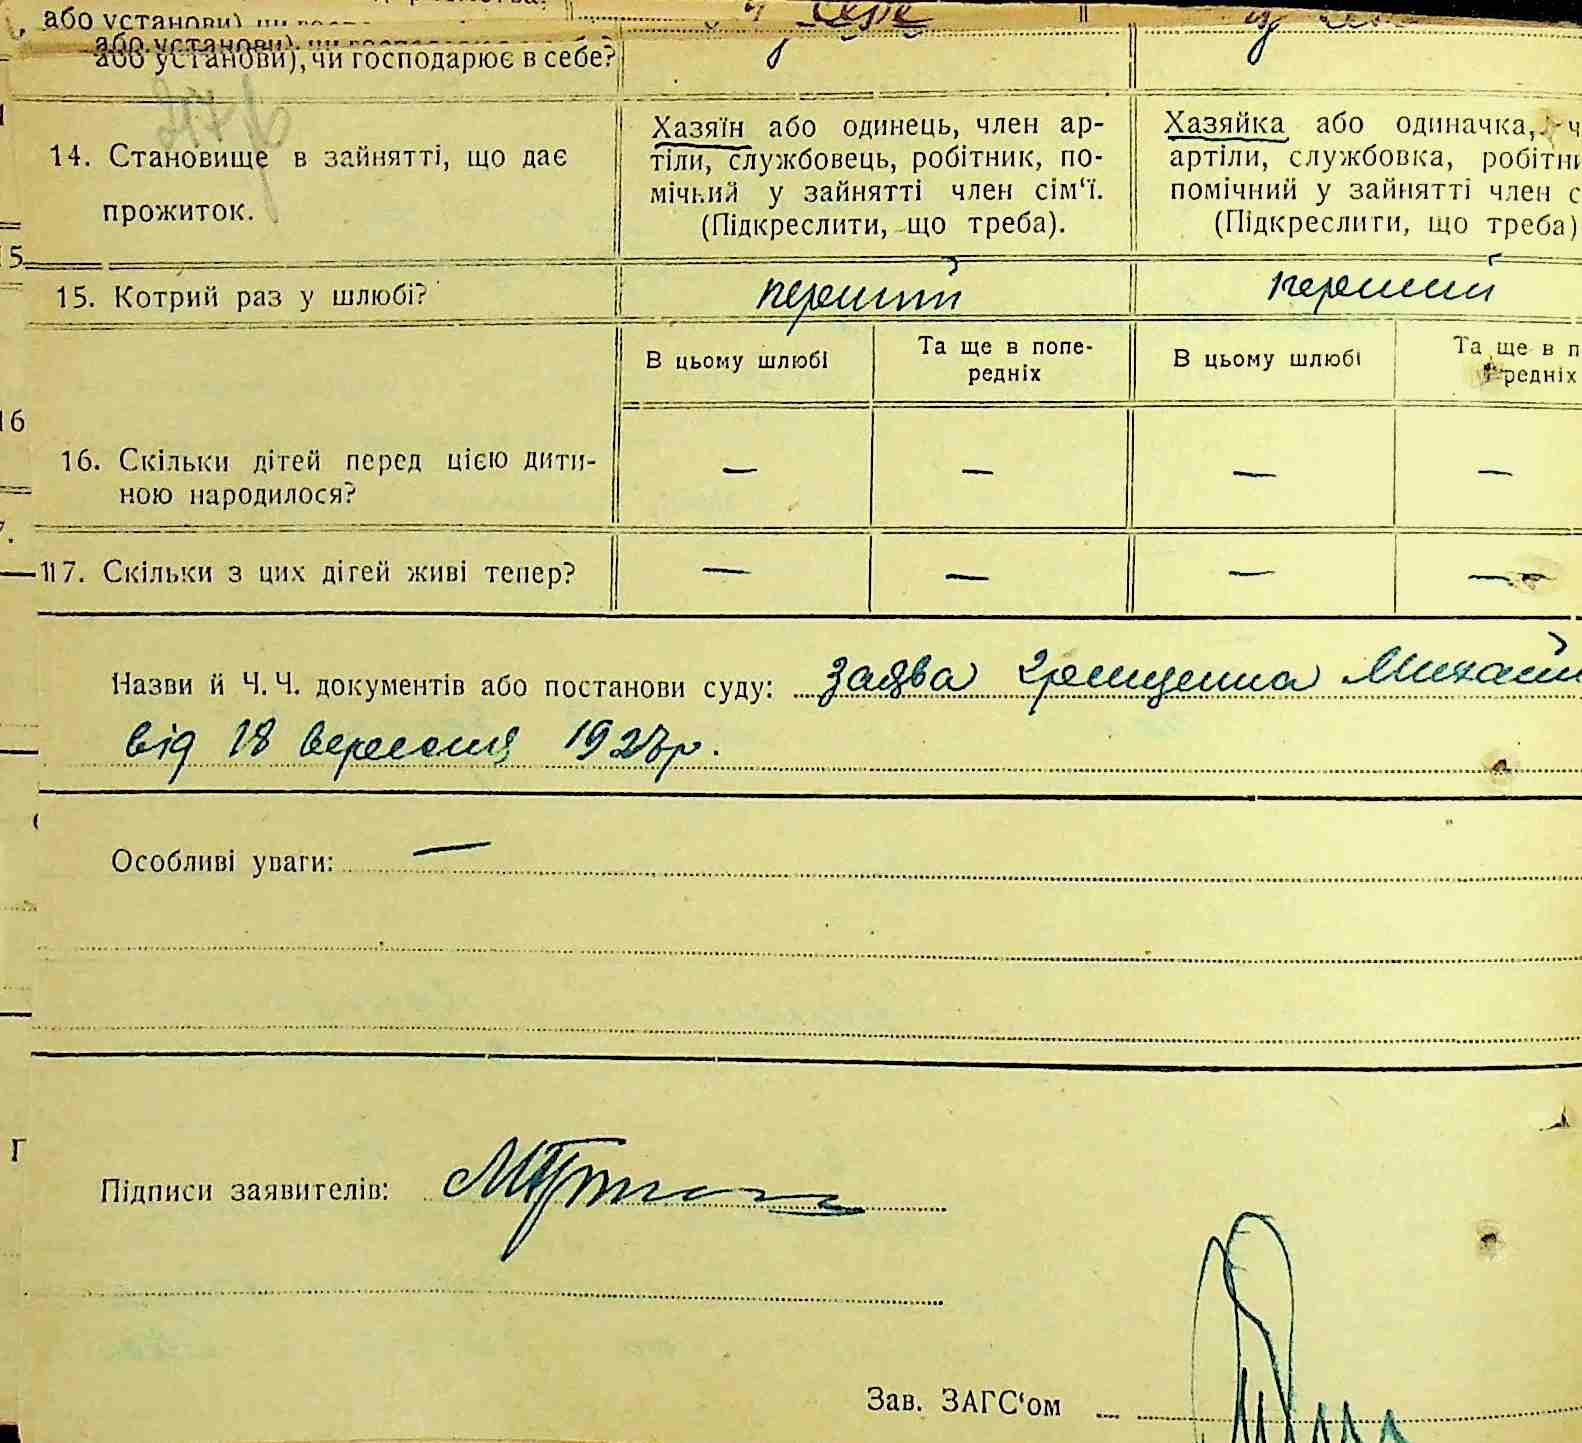 або установи), чи господарює в себе?
14. Становище в зайнятті, що дає
прожиток.
Хазяїн або одинець, член ар-
тіли, службовець, робітник, по-
мічний у зайнятті член сім‘ї.
(Підкреслити, що треба).
Хазяйка або одиначка, ч
артіли, службовка, робітни
помічний у зайнятті член с
(Підкреслити, що треба)
15. Котрий раз у шлюбі?
перший
перший
В цьому шлюбі
Та ще в попе-
редніх
В цьому шлюбі
Та ще в п
редніх
16. Скільки дітей перед цією дити-
ною народилося?
— — — —
17. Скільки з цих дітей живі тепер?
— — — —
Назви й Ч. Ч. документів або постанови суду: заява Грищенка Михайл
від 18 вересня 1928р.
Особливі уваги: —
Підписи заявителів:
Зав. ЗАГС‘ом